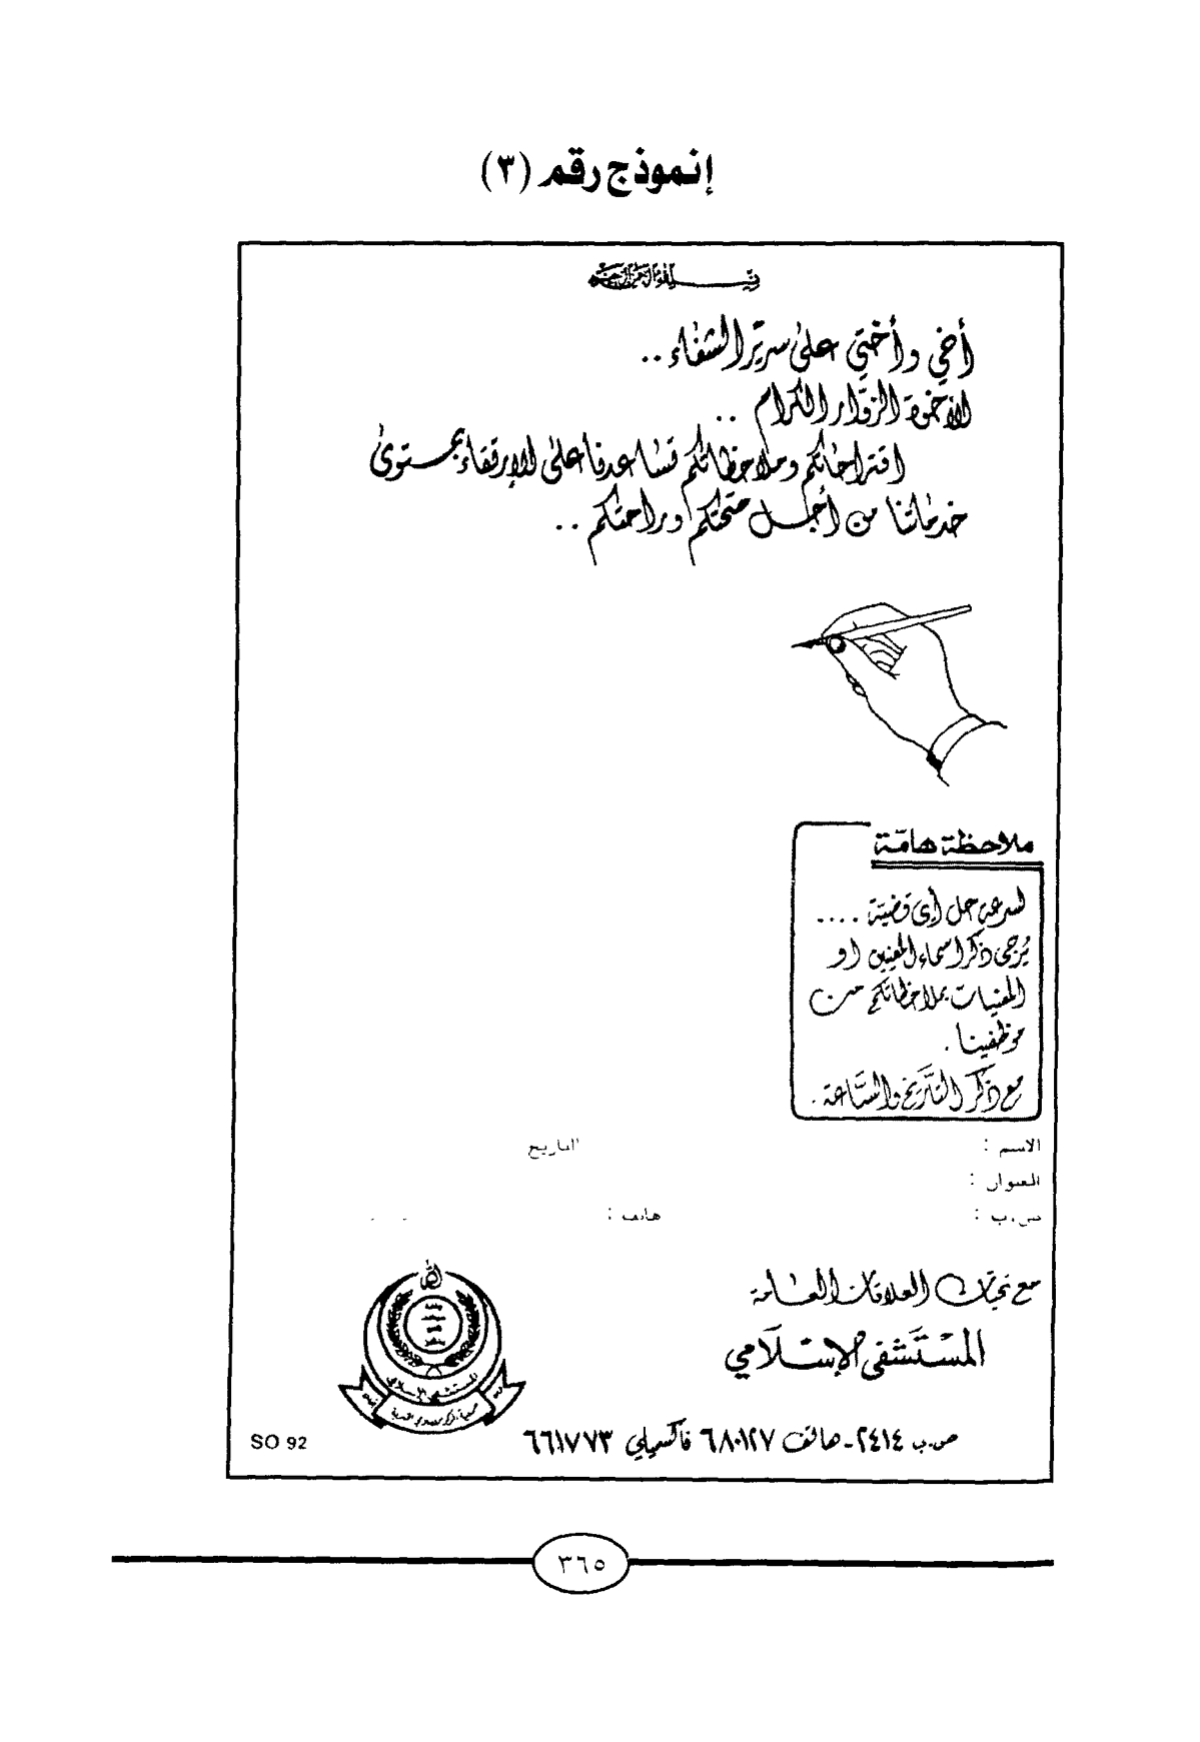 إنموذج رقم (٣)
بسم الله الرحمن الرحيم
أخي وأختي على سرير الشفاء ..
الأخوة الزوار الكرام ..
اقتراحاتكم وملاحظاتكم تساعدنا على الإرتقاء بمستوى
خدماتنا من أجل صحتكم وراحتكم ..
ملاحظة هامّة
لسرعة حل أي قضية ....
يُرجى ذكر اسماء المعنيين او
المعنيات بملاحظاتكم من
موظفينا .
مع ذكر التاريخ والساعة .
الاسم : التاريخ
العنوان :
ص.ب : هاتف :
مع تحيات العلاقات العامة
المستشفى الإسلامي
المستشفى الإسلامي
ص.ب ٢٤١٤ - هاتف ٦٨٠١٢٧ فاكسميلي ٦٦١٧٧٣
SO 92
٣٦٥